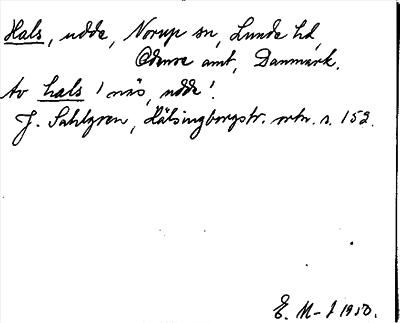 Hals, udde, Norup sn, Lunde hd,
Odense amt, Danmark.
Av hals 'näs, udde'.
J. Sahlgren, Hälsingborgstr. ortn. s. 152.
E. M-J 1950.